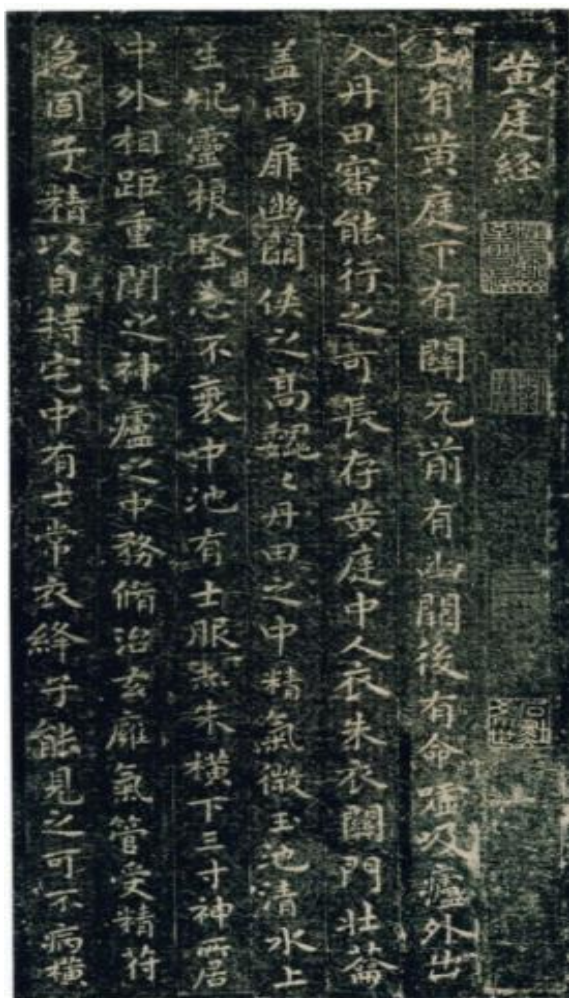 黄庭経
上有黄庭下有關元前有幽闕後有命嘘吸廬外出
入丹田審能行之可長存黄庭中人衣朱衣關門壮蘥
盖兩扉幽闕侠之髙巍〻丹田之中精氣微玉池清水上
生肥靈根堅志不衰中池有士服赤朱横下三寸神所居
中外相距重閇之神廬之中務脩治玄廱氣管受精符
急固子精以自持宅中有士常衣絳子能見之可不病横